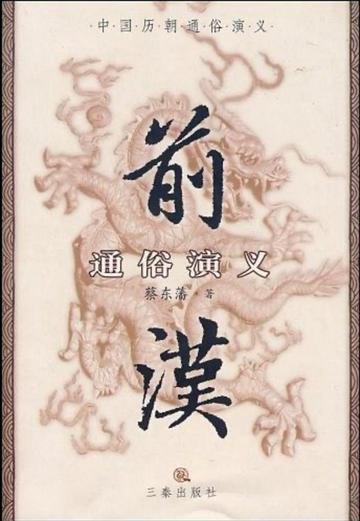 ·中·国·历·朝·通·俗·演·义·
前
通俗演义
蔡东藩·著
漢
三秦出版社